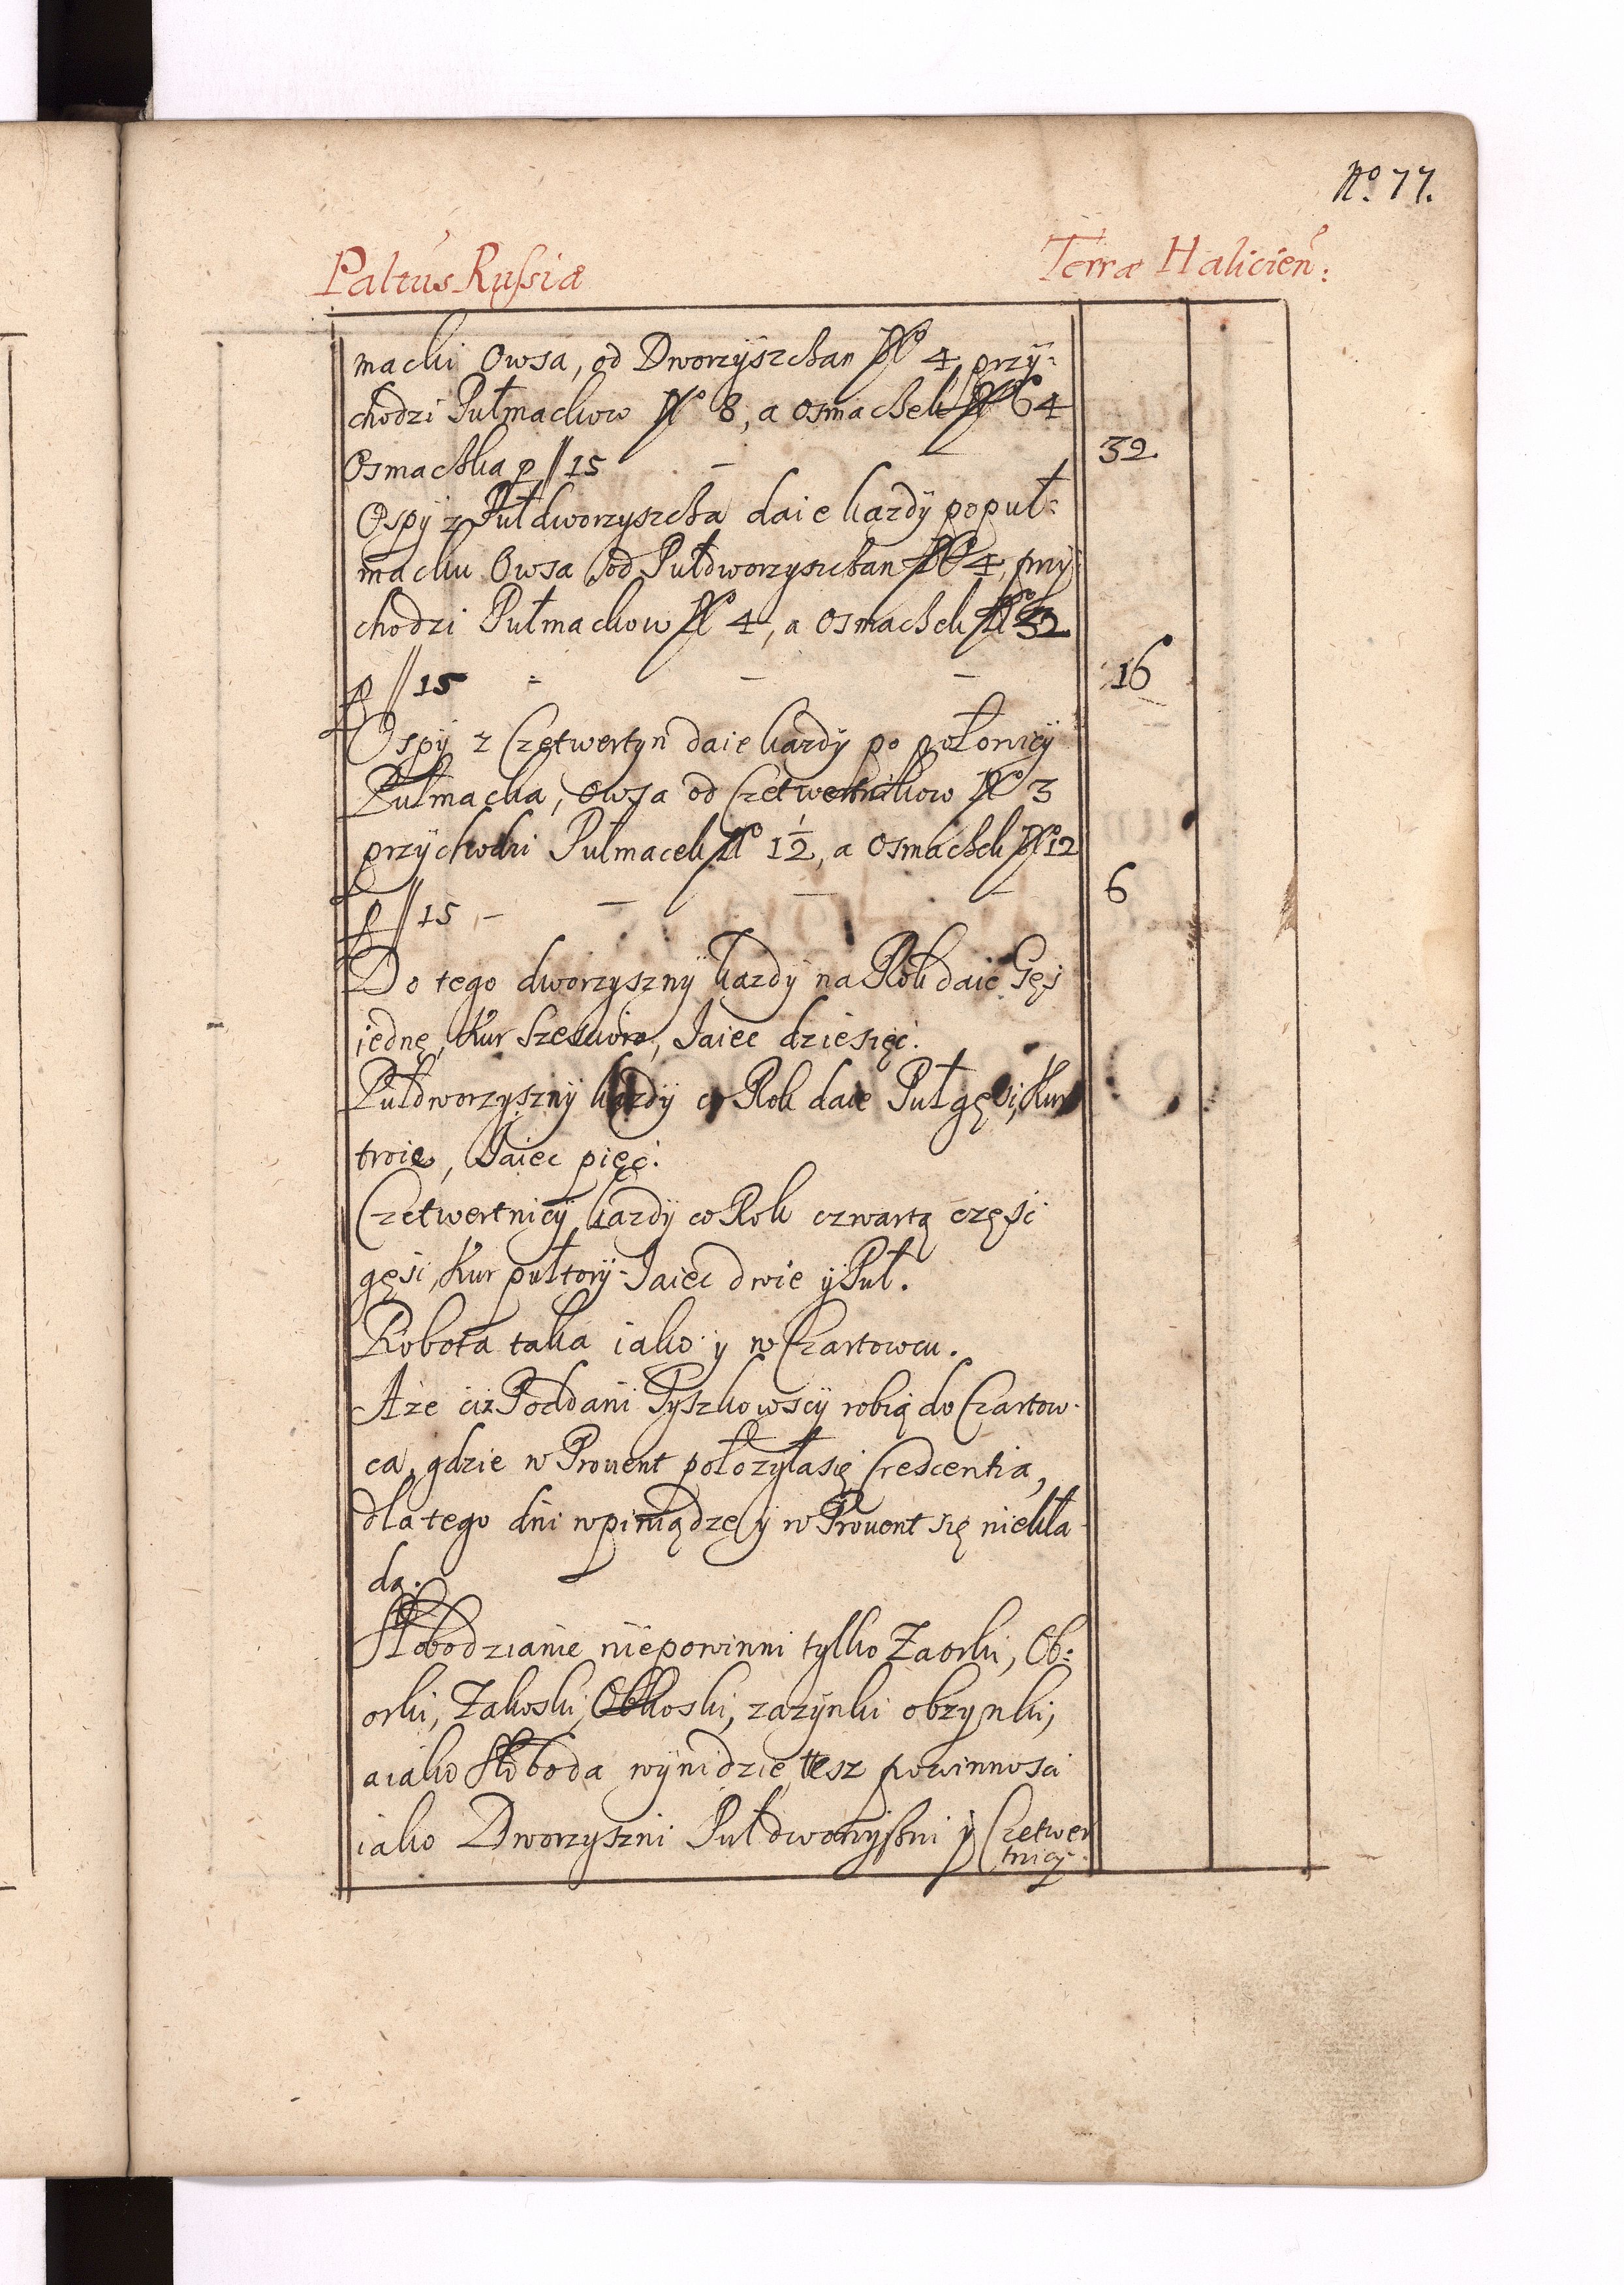 No. 77.
Paltus Russiæ Terræ Halicien:
macki Owsa, od Dworzyszchan No 4, przy-
chodzi Pułmackow No 8, a osmaczek No 64
Osmaczka p // 15 – – 32
Ospy z Pułdworzyszcza daie kazdy po puł-
macku Owsa od Pułdworzyszchan No 4, przy
chodzi Pułmackow No 4, a osmaczek No 32
p // 15 – – – 16
Ospy z Czetwertyn daie kazdy po połowicy
Pułmacka, Owsa od Czetwertnikow No 3
przychodzi Pułmacek No 1½, a Osmaczek No 12
p // 15 – – – – 6
Do tego dworzyszny kazdy na Rok daie Gęś
iednę, Kur szescioro, Jaiec dziesięć.
Pułdworzyszny kazdy co Rok daie Puł gęsi, Kur
troie, Jaiec pięć.
Czetwertnicy kazdy co Rok czwartą część
gęsi, Kur pułtory Jaiec dwie y Puł.
Robota taka iako y w Czartowcu.
Aże ciż Poddani Pyszkowscy robią do Czartow-
ca, gdzie w Provent połozyła się Crescentia,
dla tego dni w piniądze y w Provent się niekła-
dą.
Słobodzianie niepowinni tylko Zaorki, Ob-
orki, Zakoski, Obkoski, zazynki obzynki,
a iako Słoboda wynidzie, tesz powinnosci
iako Dworzyszni Pułdworzyszni y Czetwer
tnicy.